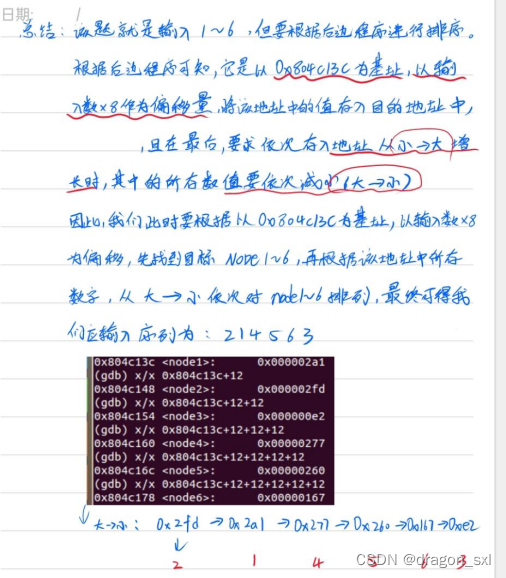 日期: /
总结: 该题就是输入 1~6 , 但要根据后边程序进行排序。
根据后边程序可知, 它是以 0x804c13c 为基址, 以输
入数×8 作为偏移量, 将该地址中的值存入目的地址中,
, 且在最后, 要求依次存入地址 从小→大 增
长时, 其中的所存数值要依次减小 (大→小)
因此, 我们此时要根据以 0x804c13c 为基址, 以输入数×8
为偏移, 先找到目标 NODE 1~6, 再根据该地址中所存
数字, 从大→小 依次对 node1~6 排列, 最终可得我
们应输入序列为: 2 1 4 5 6 3
0x804c13c <node1>: 0x000002a1
(gdb) x/x 0x804c13c+12
0x804c148 <node2>: 0x000002fd
(gdb) x/x 0x804c13c+12+12
0x804c154 <node3>: 0x000000e2
(gdb) x/x 0x804c13c+12+12+12
0x804c160 <node4>: 0x00000277
(gdb) x/x 0x804c13c+12+12+12+12
0x804c16c <node5>: 0x00000260
(gdb) x/x 0x804c13c+12+12+12+12+12
0x804c178 <node6>: 0x00000167
↓大→小: 0x2fd → 0x2a1 → 0x277 → 0x260 → 0x167 → 0xe2
↓
2 1 4 5 6 3
CSDN @dragon_sxl